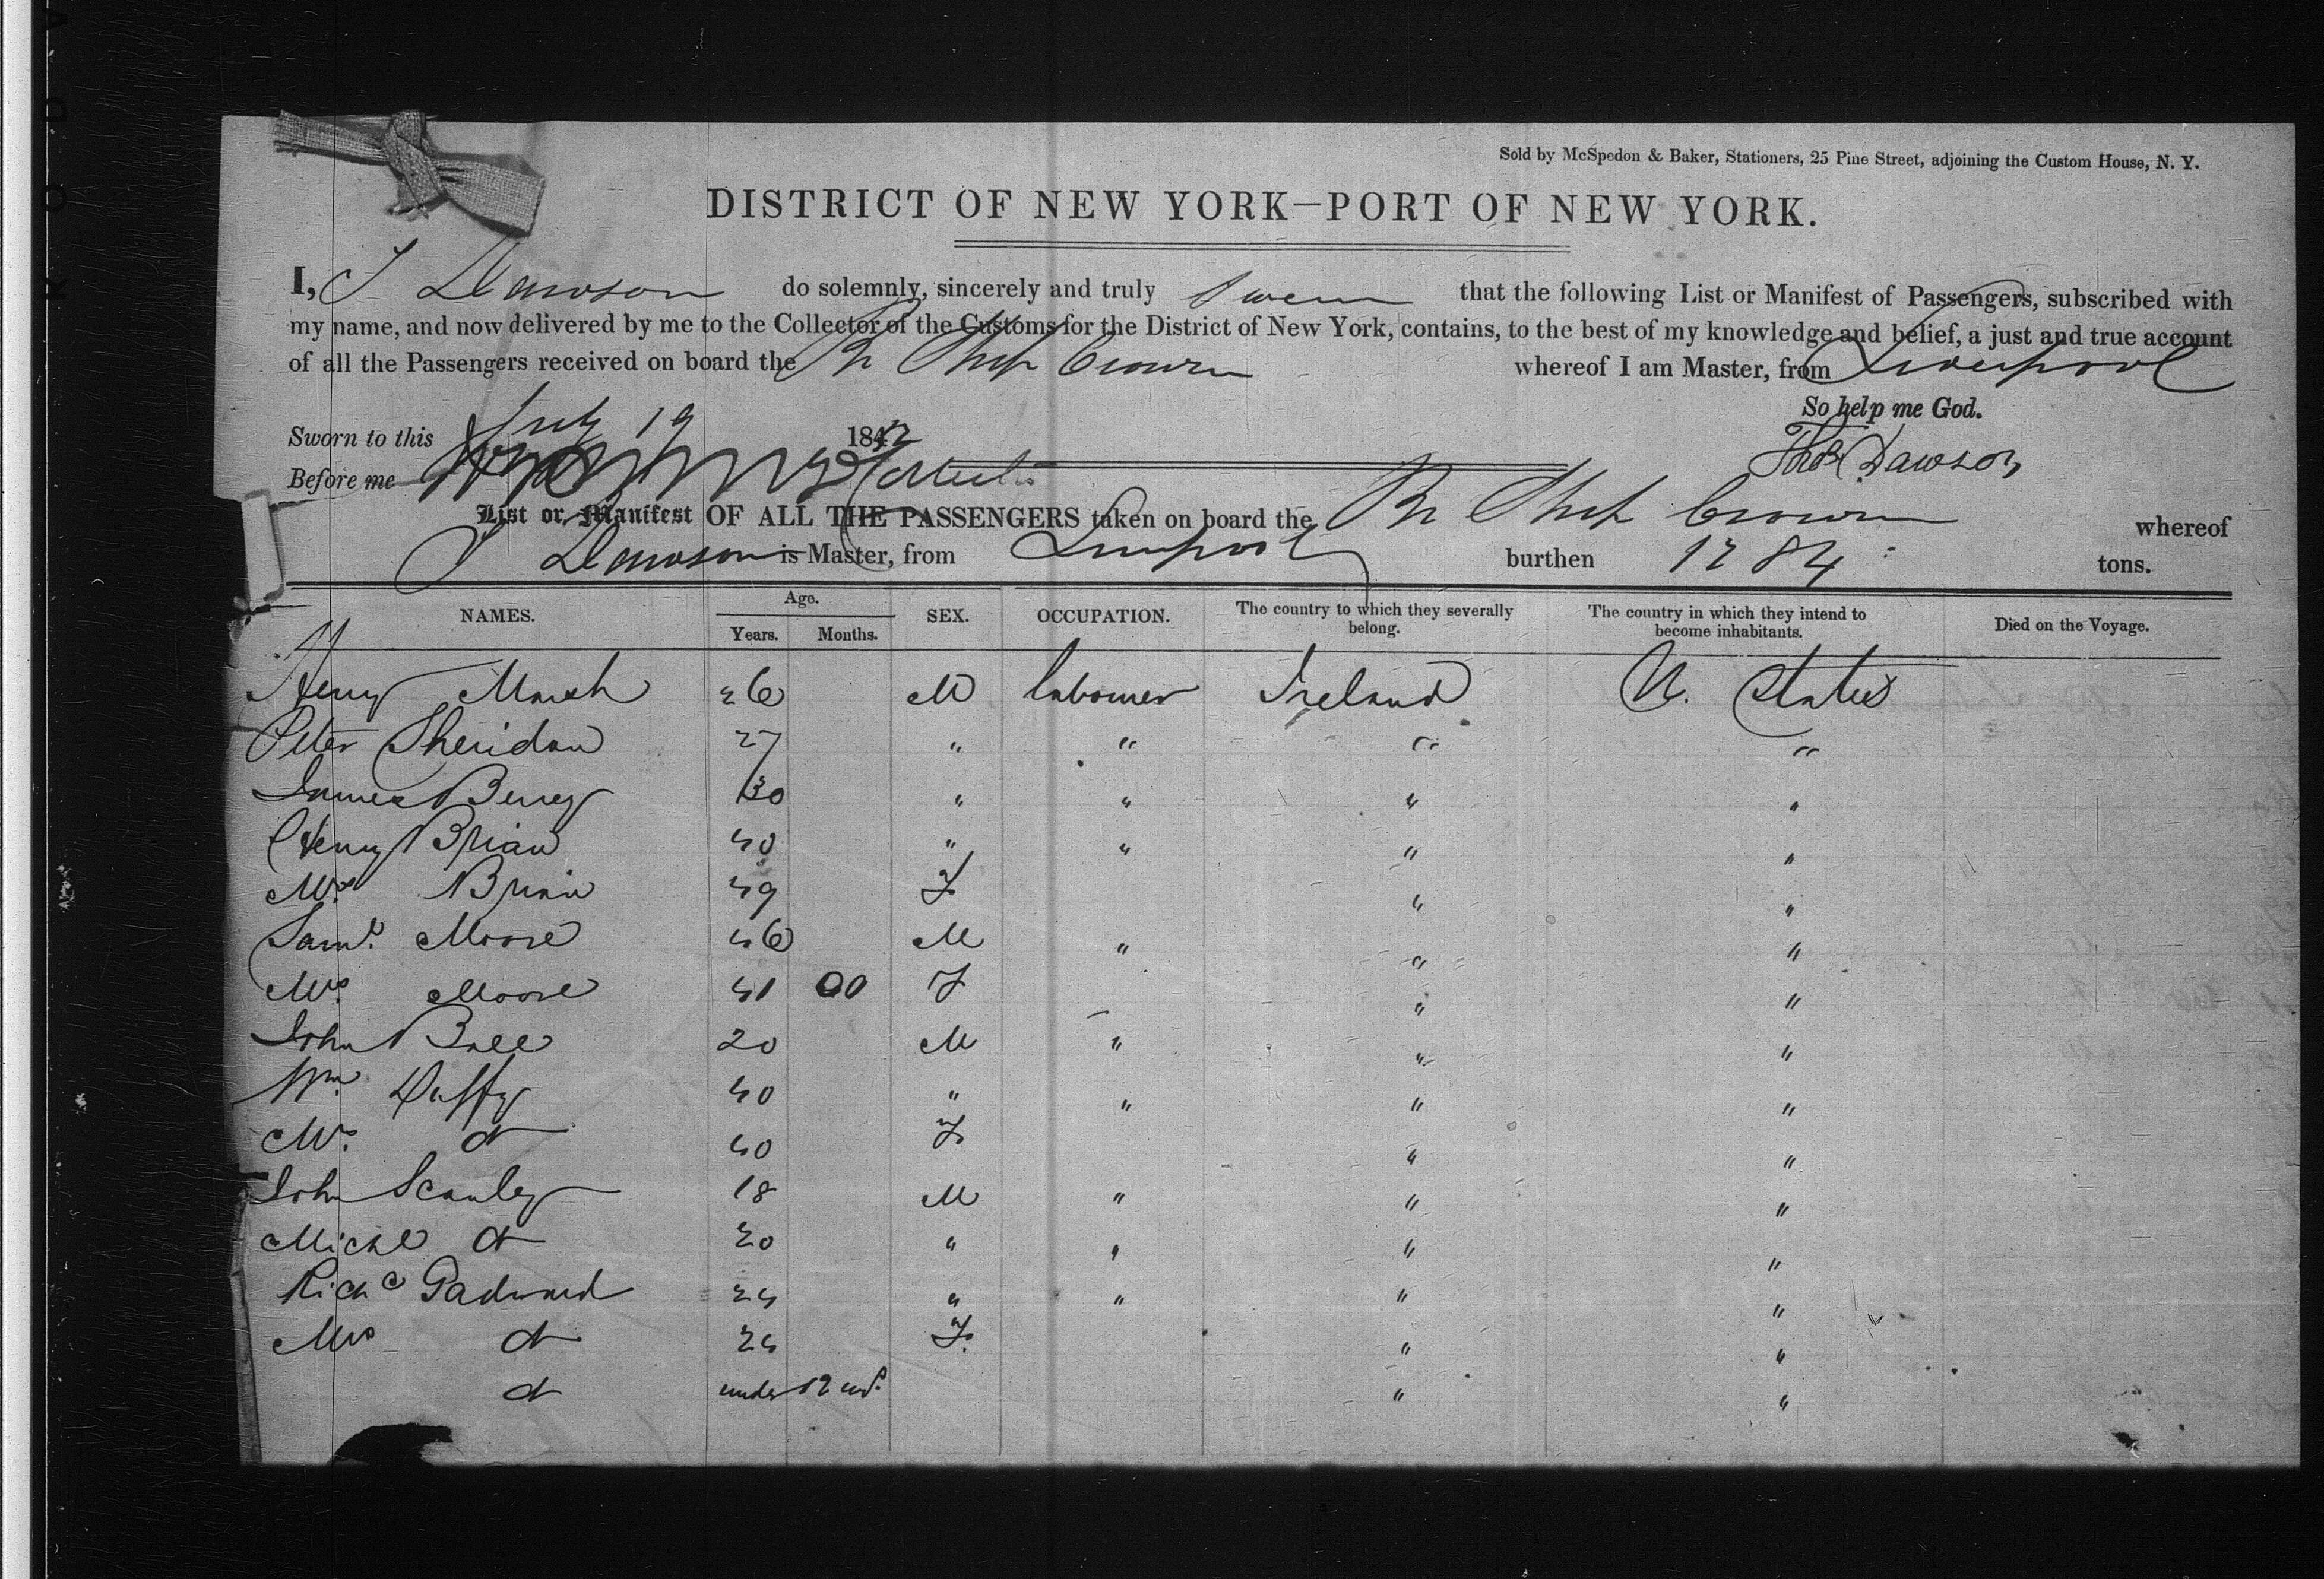 Sold by McSpedon & Baker, Stationers, 25 Pine Street, adjoining the Custom House, N. Y.
DISTRICT OF NEW YORK—PORT OF NEW YORK.
I, T Dawson do solemnly, sincerely and truly swear that the following List or Manifest of Passengers, subscribed with
my name, and now delivered by me to the Collector of the Customs for the District of New York, contains, to the best of my knowledge and belief, a just and true account
of all the Passengers received on board the Br Ship Crown whereof I am Master, from Liverpool
So help me God.
Sworn to this July 19 184
Thos Dawson
Before me
List or Manifest OF ALL THE PASSENGERS taken on board the Br Ship Crown whereof
T Dawson is Master, from Liverpool burthen 1284 tons.
NAMES. Age. Years. Months. SEX. OCCUPATION. The country to which they severally belong. The country in which they intend to become inhabitants. Died on the Voyage.
Henry Marsh 26 M labourer Ireland U. States
Peter Sheridan 27 " " " "
James Berry 30 " " " "
Henry Brian 40 " " " "
Mrs Brian 49 F " "
Saml Moore 46 M " " "
Mrs Moore 41 00 F " "
John Ball 20 M " " "
Wm Duffy 40 " " " "
Mrs do 40 F " "
John Scanley 18 M " " "
Michl do 20 " " " "
Richd 24 " " " "
Mrs do 24 F. " "
do under 12 ms " "